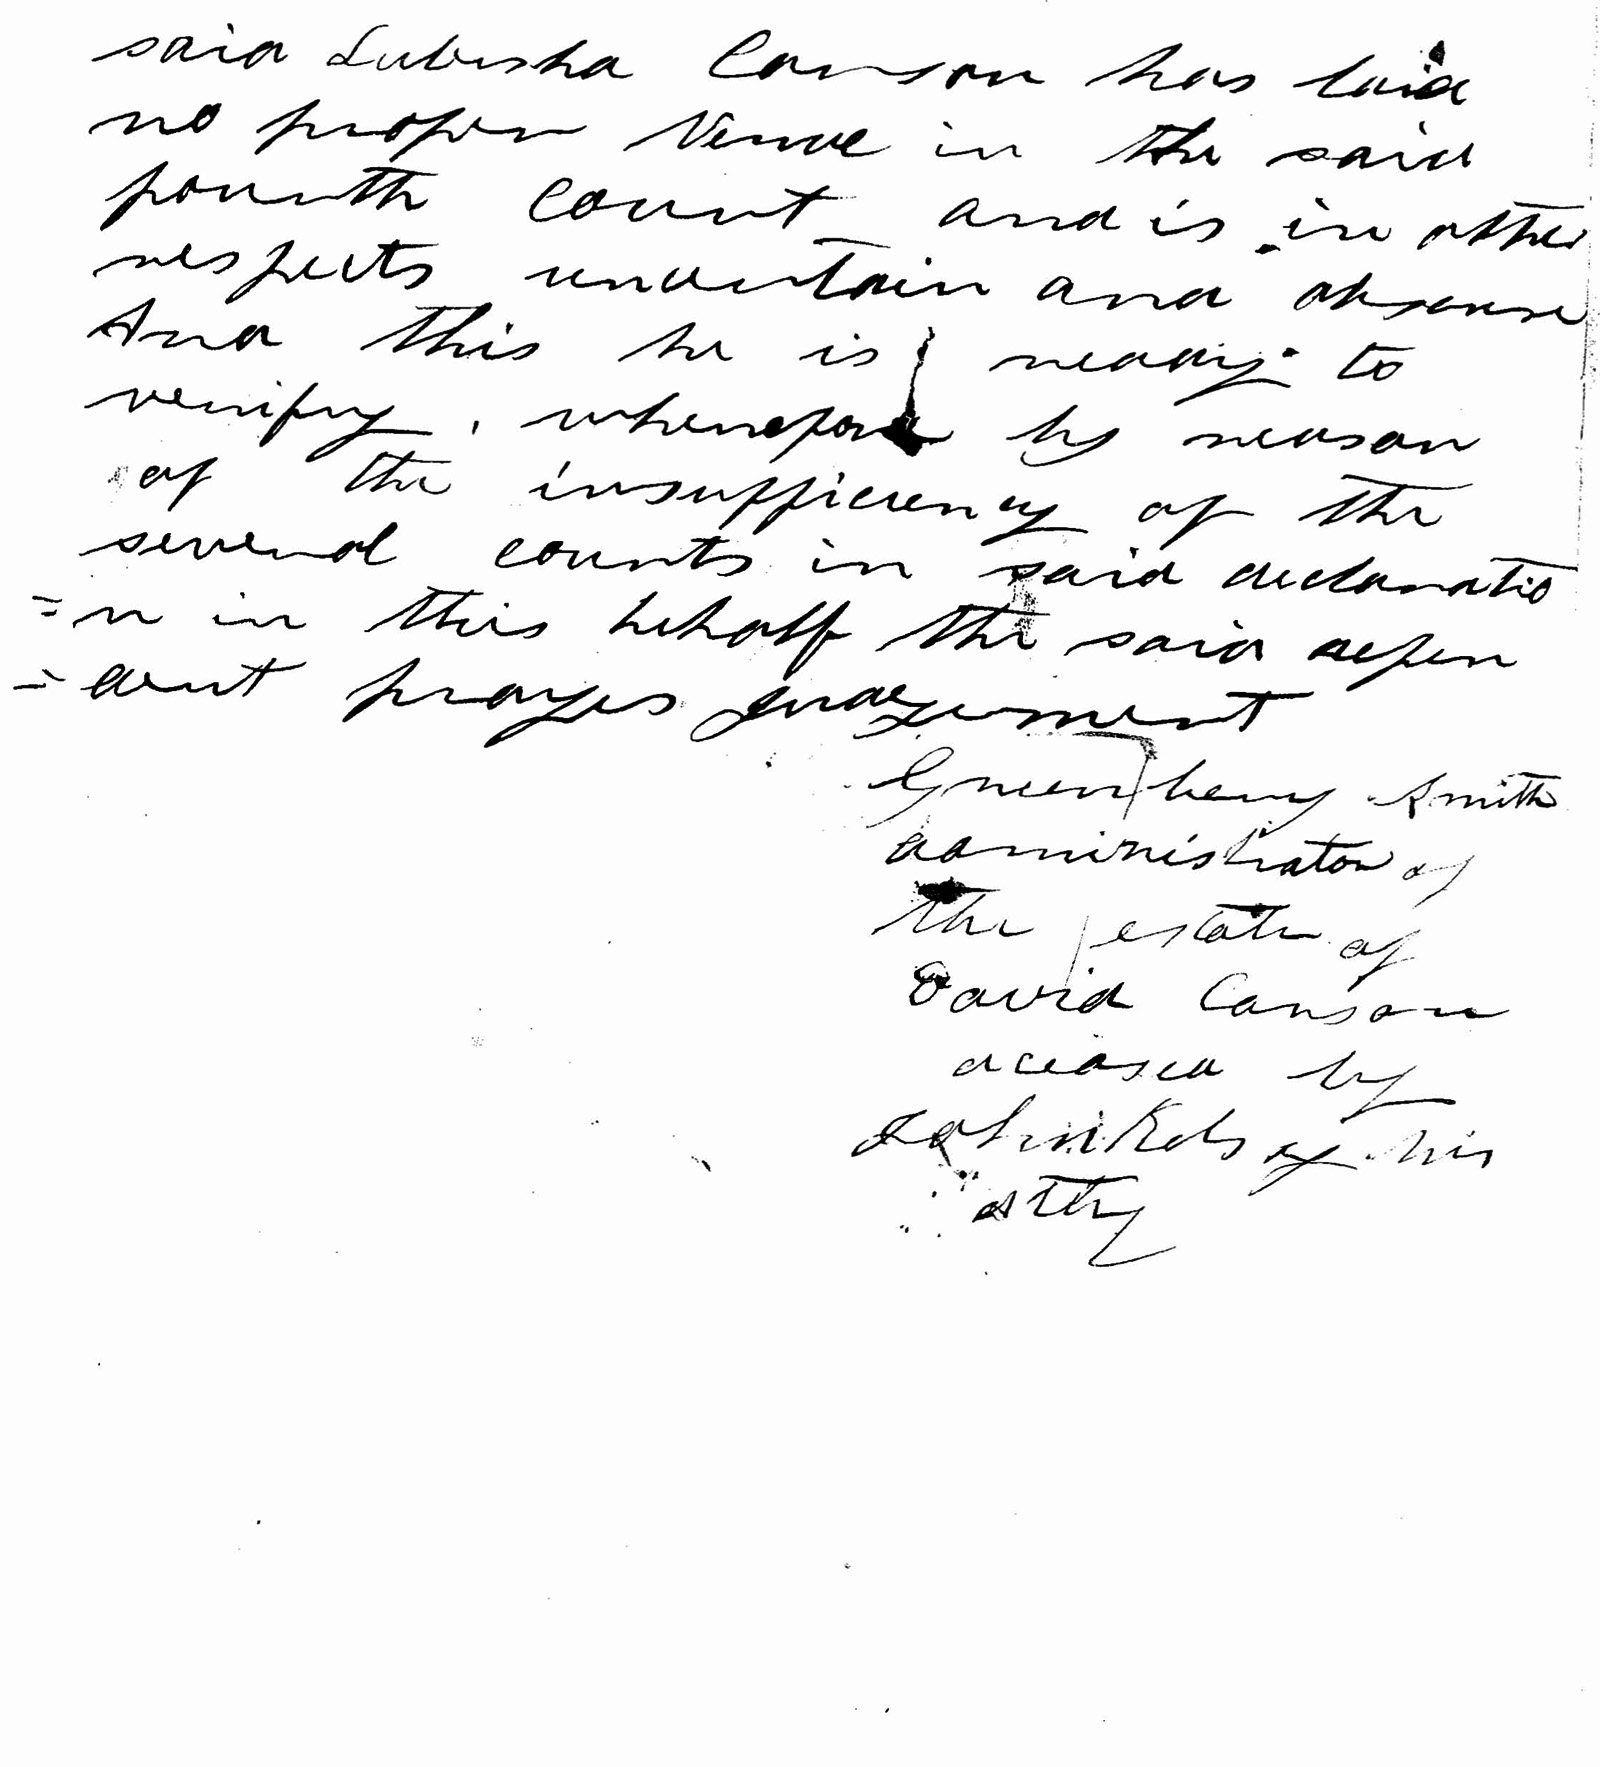 said Lubisha Carson has laid
no proper Venue in the said
fourth Count and is in other
respects uncertain and obscure
And this he is ready to
verify, wherefore by reason
of the insufficiency of the
several counts in said declaratio
=n in this behalf the said defen
=dent prayes Judgement
Greenberry Smith
administrator of
the estate of
David Carson
deceased by
John Kelsey his
Atty